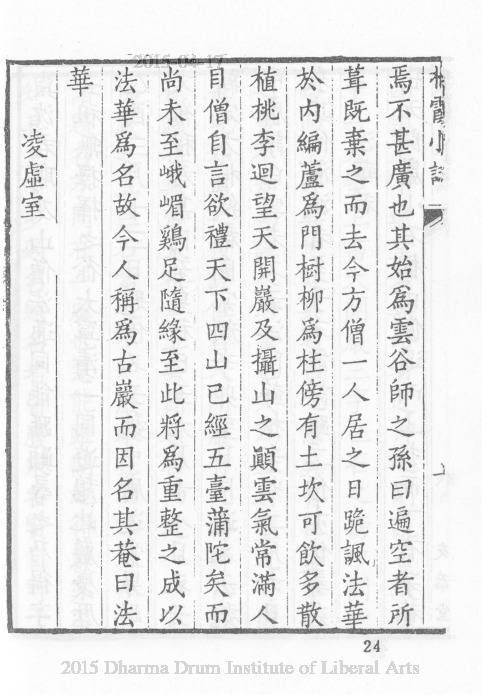 2015-04-17
棲霞小誌
焉不甚廣也其始為雲谷師之孫曰遍空者所
葺既棄之而去今方僧一人居之日跪諷法華
於內編蘆為門樹柳為柱傍有土坎可飲多散
植桃李迴望天開巖及攝山之顚雲氣常滿人
目僧自言欲禮天下四山已經五臺蒲陀矣而
尚未至峨嵋鷄足隨緣至此將為重整之成以
法華為名故今人稱為古巖而因名其菴曰法
華
凌虛室
24
2015 Dharma Drum Institute of Liberal Arts